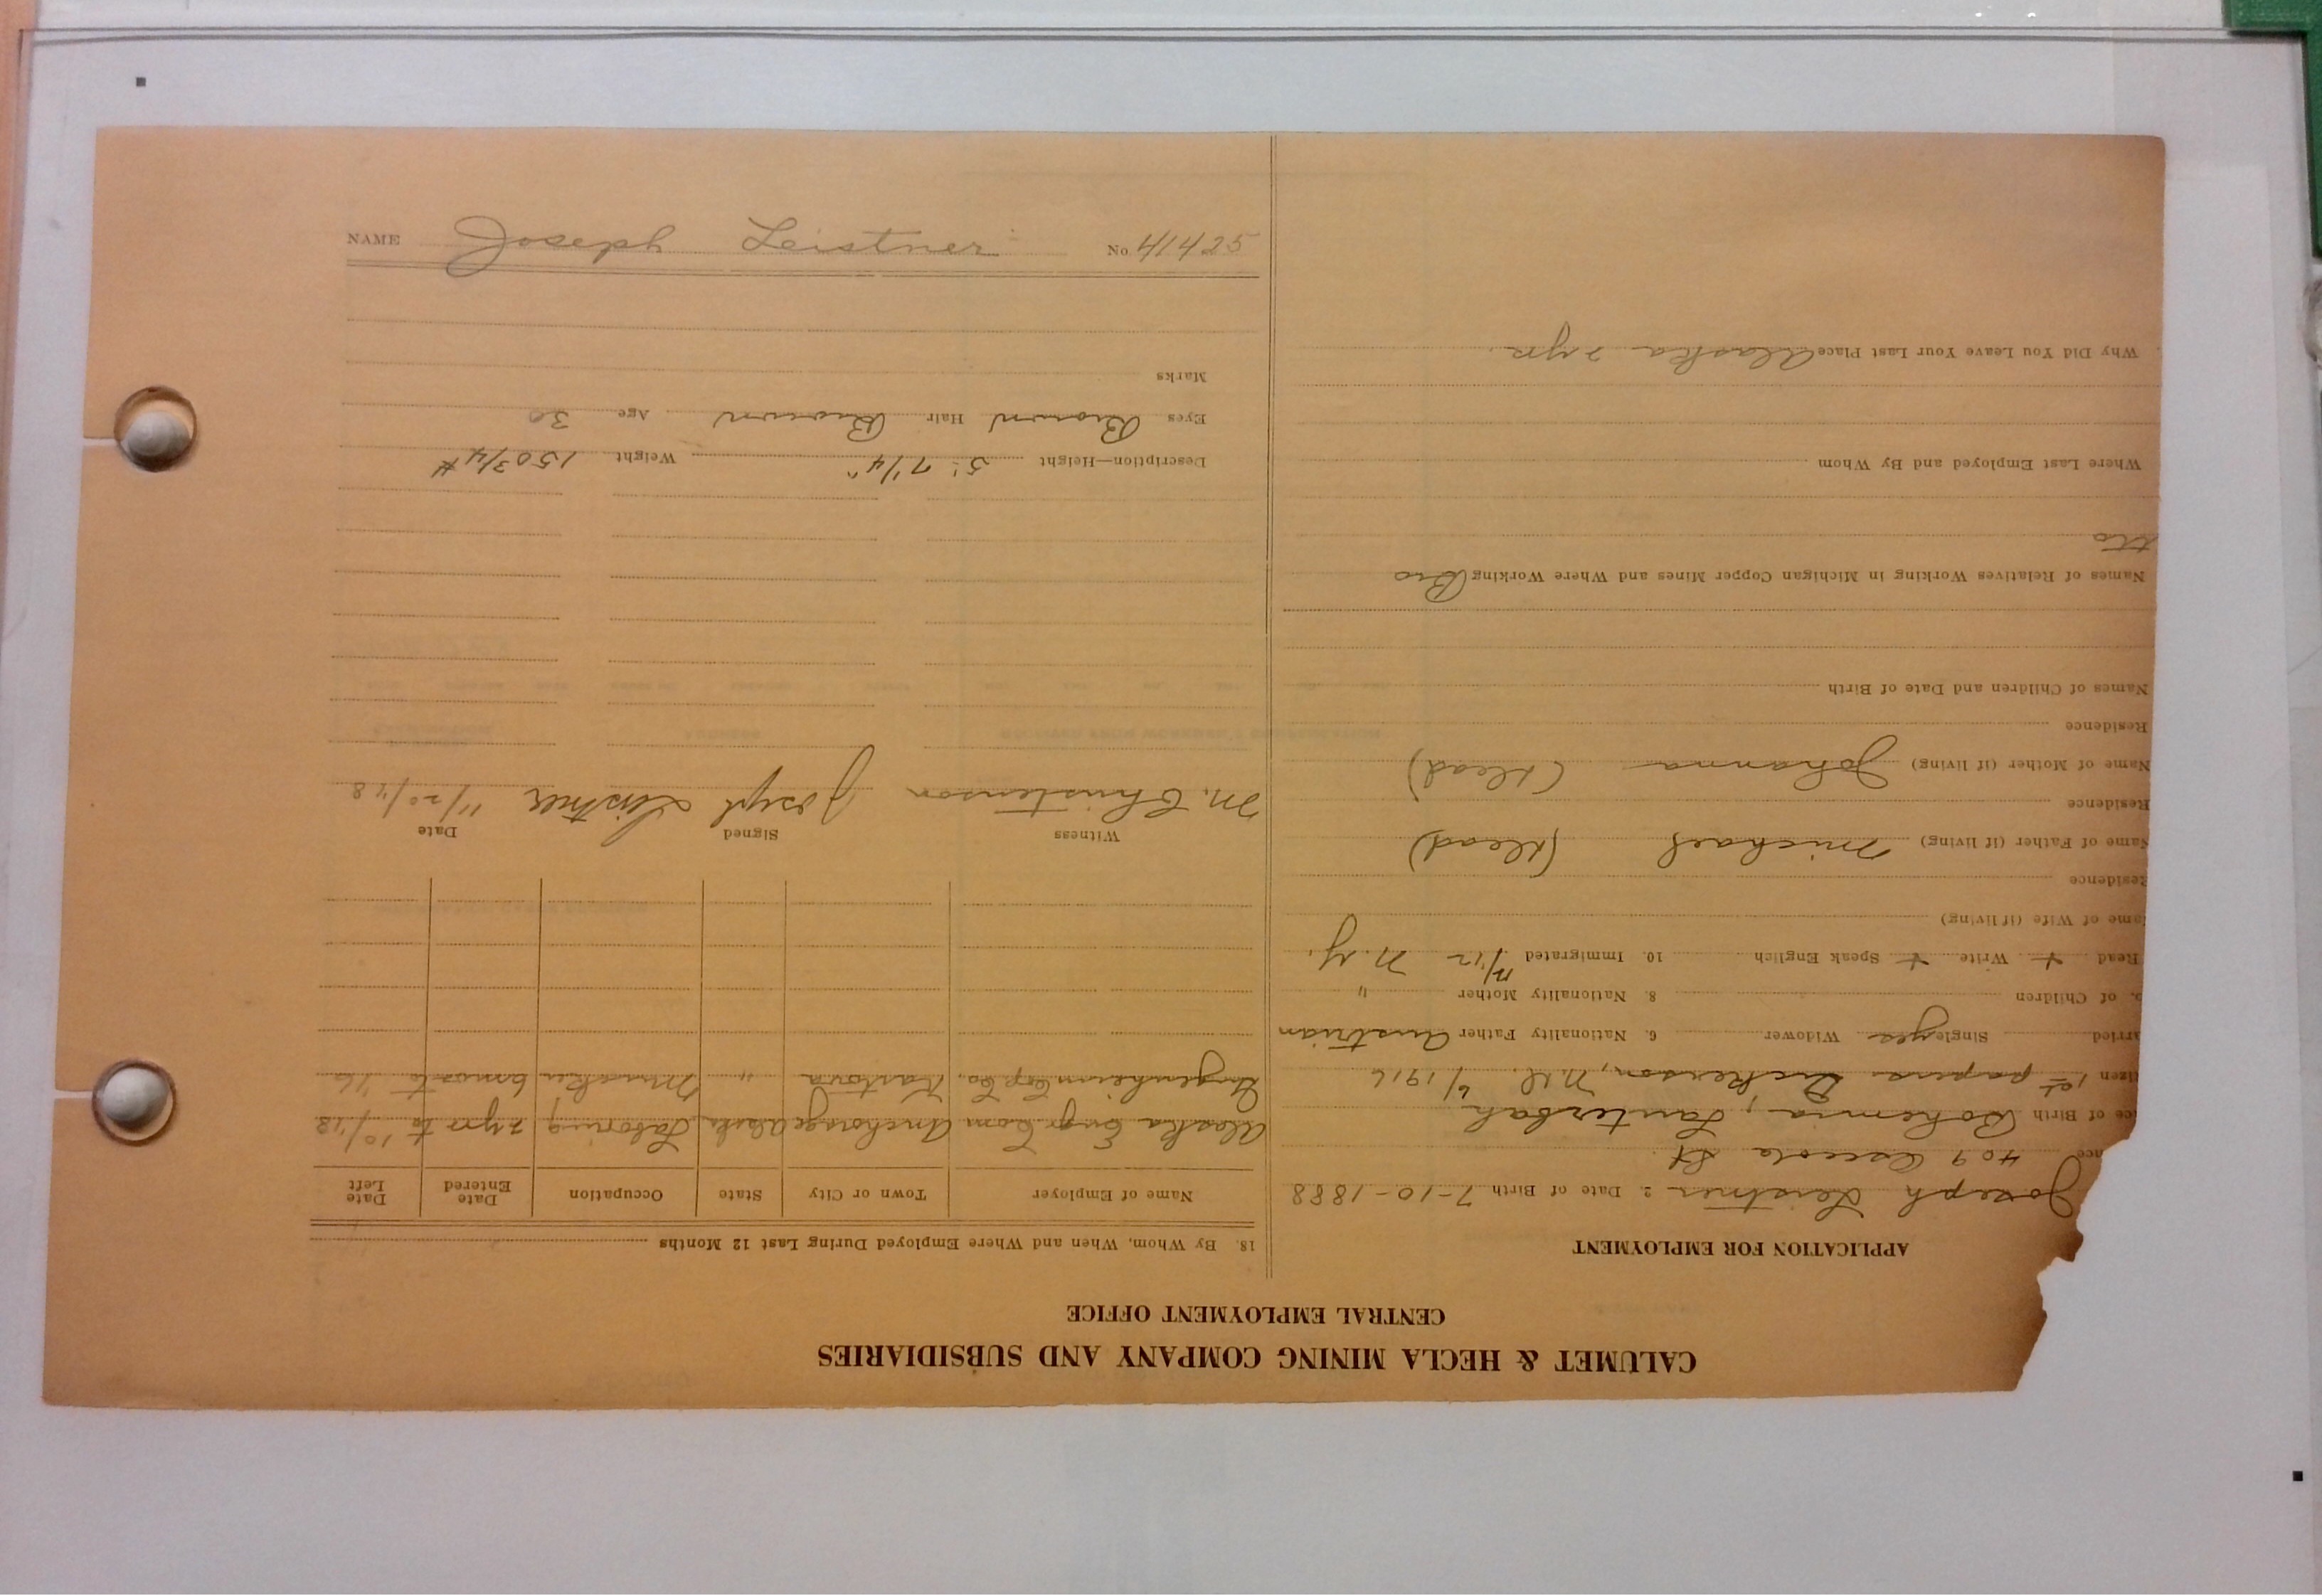 CALUMET & HECLA MINING COMPANY AND SUBSIDIARIES
CENTRAL EMPLOYMENT OFFICE
APPLICATION FOR EMPLOYMENT
Joseph Leistner 2. Date of Birth 7-10-1888
nce 409 Osceola St.
ce of Birth Bohemia, Lauterbah
izen 1st papers Dickerson, N.D. 6/1916
arried Single yes Widower 6. Nationality Father Austrian
o. of Children 8. Nationality Mother "
Read + Write + Speak English 10. Immigrated /12 N.Y.
ame of Wife (if living)
Residence
Name of Father (if living) Michael (Dead)
Residence
Name of Mother (if living) Johanna (Dead)
Residence
Names of Children and Date of Birth
Names of Relatives Working in Michigan Copper Mines and Where Working Bro
Where Last Employed and By Whom
Why Did You Leave Your Last Place Alaska 2 yrs.
18. By Whom, When and Where Employed During Last 12 Months
Name of Employer Town or City State Occupation Date Entered Date Left
Alaska Eng. Com Anchorage Alaska Laboring 2 yrs to 10/18
Gugenheim Exp Co. " Mucker 6 mos to '16
Witness Signed Date
M. Christenson Joseph Leistner 11/20/18
Description—Height 5' 7 1/4" Weight 150 3/4 #
Eyes Brown Hair Brown Age 30
Marks
NAME Joseph Leistner No 41425